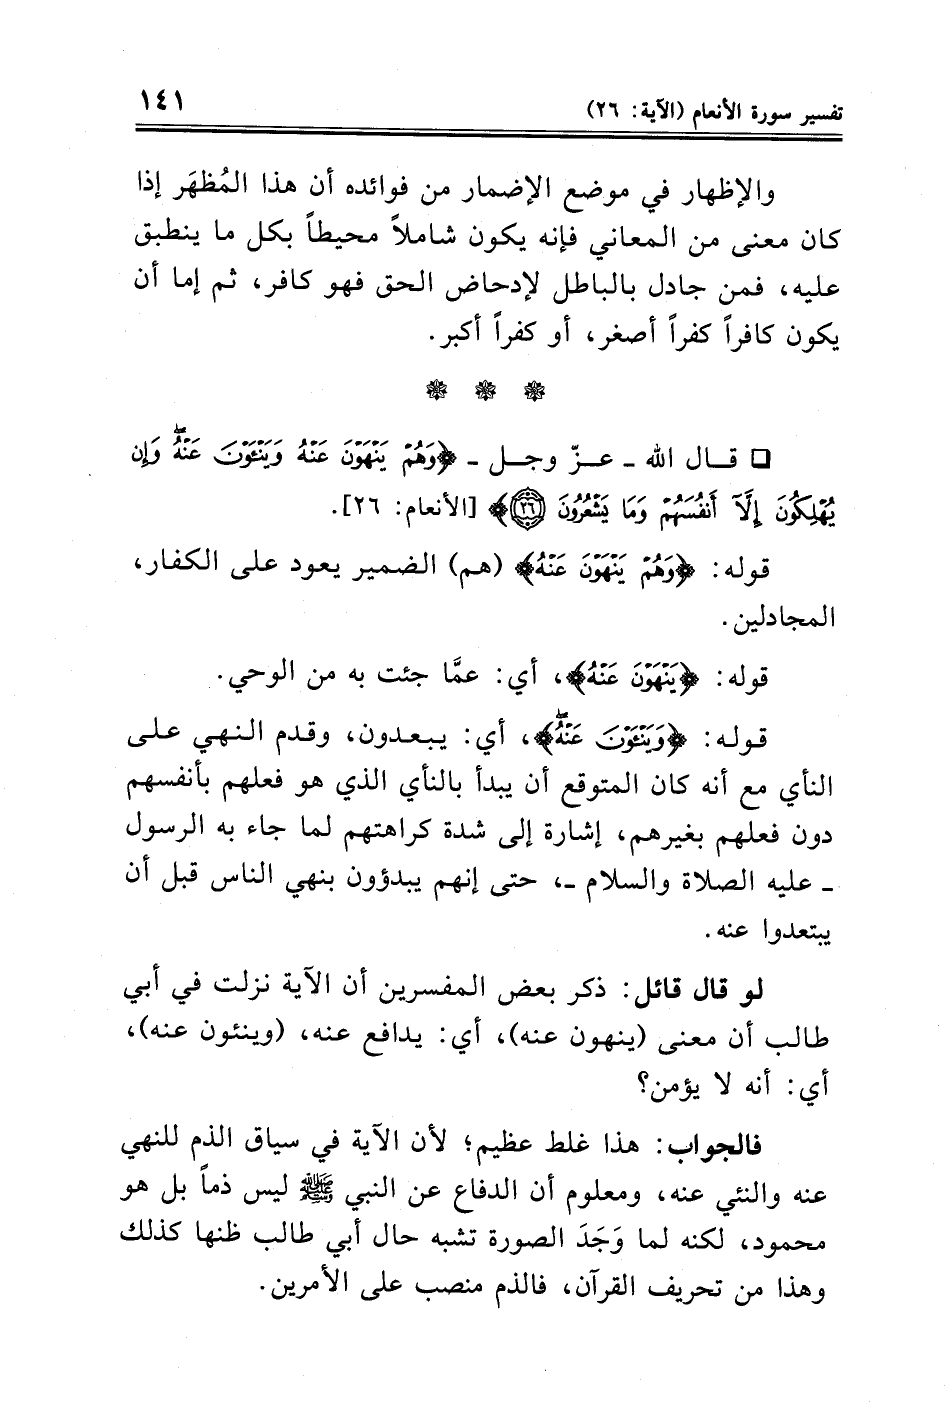 تفسير سورة الأنعام (الآية: ٢٦) ١٤١
والإظهار في موضع الإضمار من فوائده أن هذا المُظهَر إذا
كان معنى من المعاني فإنه يكون شاملاً محيطاً بكل ما ينطبق
عليه، فمن جادل بالباطل لإدحاض الحق فهو كافر، ثم إما أن
يكون كافراً كفراً أصغر، أو كفراً أكبر.
□ قـال الله ـ عـزّ وجـل ـ ﴿وَهُمْ يَنْهَوْنَ عَنْهُ وَيَنْـَٔوْنَ عَنْهُۖ وَإِن
يُهْلِكُونَ إِلَّآ أَنفُسَهُمْ وَمَا يَشْعُرُونَ ۝٢٦﴾ [الأنعام: ٢٦].
قوله: ﴿وَهُمْ يَنْهَوْنَ عَنْهُ﴾ (هم) الضمير يعود على الكفار،
المجادلين.
قوله: ﴿يَنْهَوْنَ عَنْهُ﴾، أي: عمَّا جئت به من الوحي.
قوله: ﴿وَيَنْـَٔوْنَ عَنْهُۖ﴾، أي: يبعدون، وقدم النهي على
النأي مع أنه كان المتوقع أن يبدأ بالنأي الذي هو فعلهم بأنفسهم
دون فعلهم بغيرهم، إشارة إلى شدة كراهتهم لما جاء به الرسول
ـ عليه الصلاة والسلام ـ، حتى إنهم يبدؤون بنهي الناس قبل أن
يبتعدوا عنه.
لو قال قائل: ذكر بعض المفسرين أن الآية نزلت في أبي
طالب أن معنى (ينهون عنه)، أي: يدافع عنه، (وينئون عنه)،
أي: أنه لا يؤمن؟
فالجواب: هذا غلط عظيم؛ لأن الآية في سياق الذم للنهي
عنه والنئي عنه، ومعلوم أن الدفاع عن النبي ﷺ ليس ذماً بل هو
محمود، لكنه لما وَجَدَ الصورة تشبه حال أبي طالب ظنها كذلك
وهذا من تحريف القرآن، فالذم منصب على الأمرين.